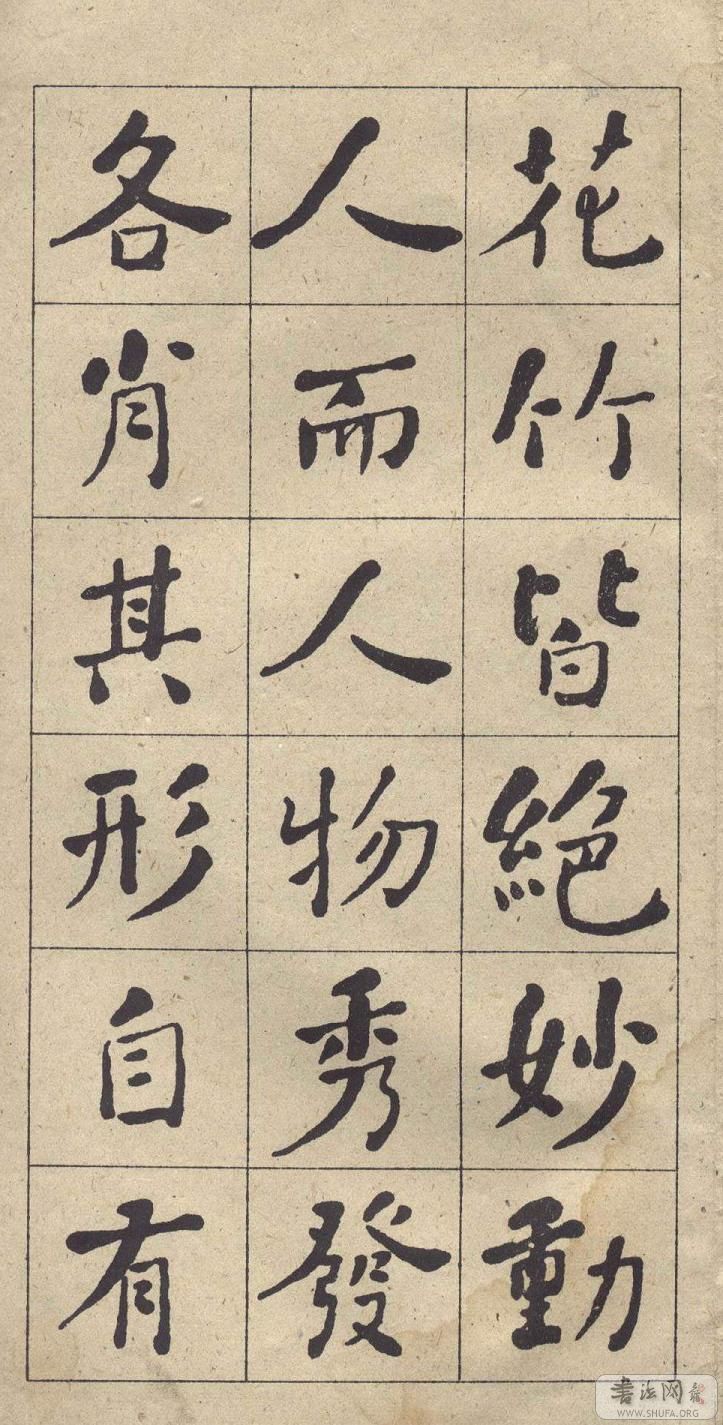 花竹皆絕妙動
人而人物秀發
各肖其形自有
書法网
WWW.SHUFA.ORG